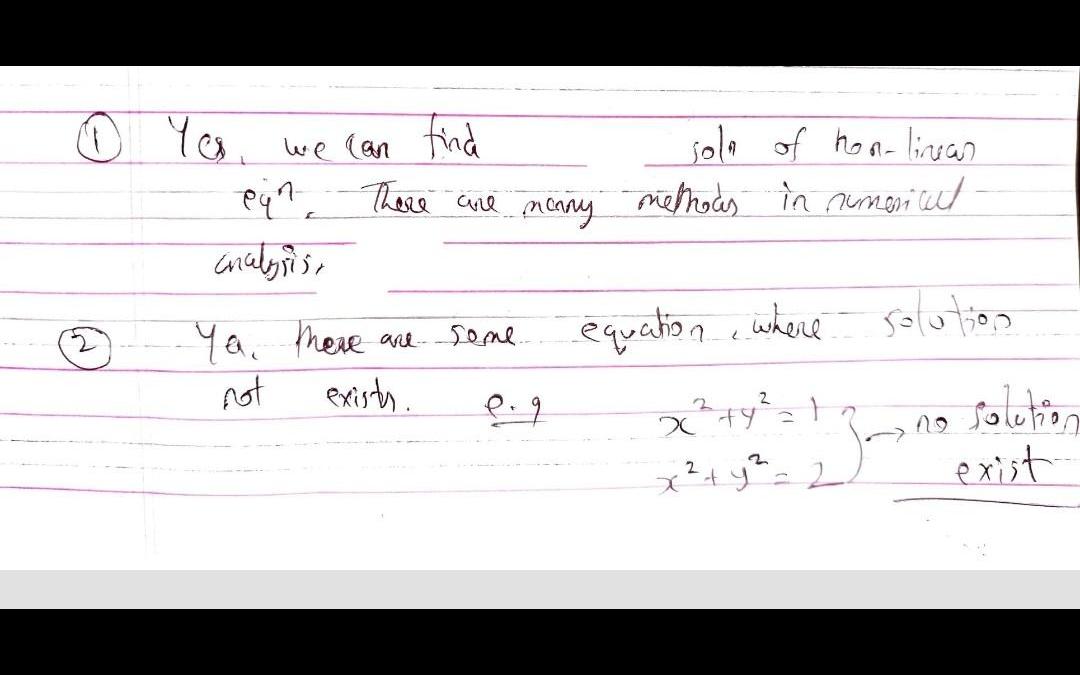 ① Yes, we can find soln of non-linear
eqn. There are many methods in numerical
analysis,
② Ya, there are some equation, where solution
not exists. e.g x² + y² = 1 } → no solution
x² + y² = 2 exist